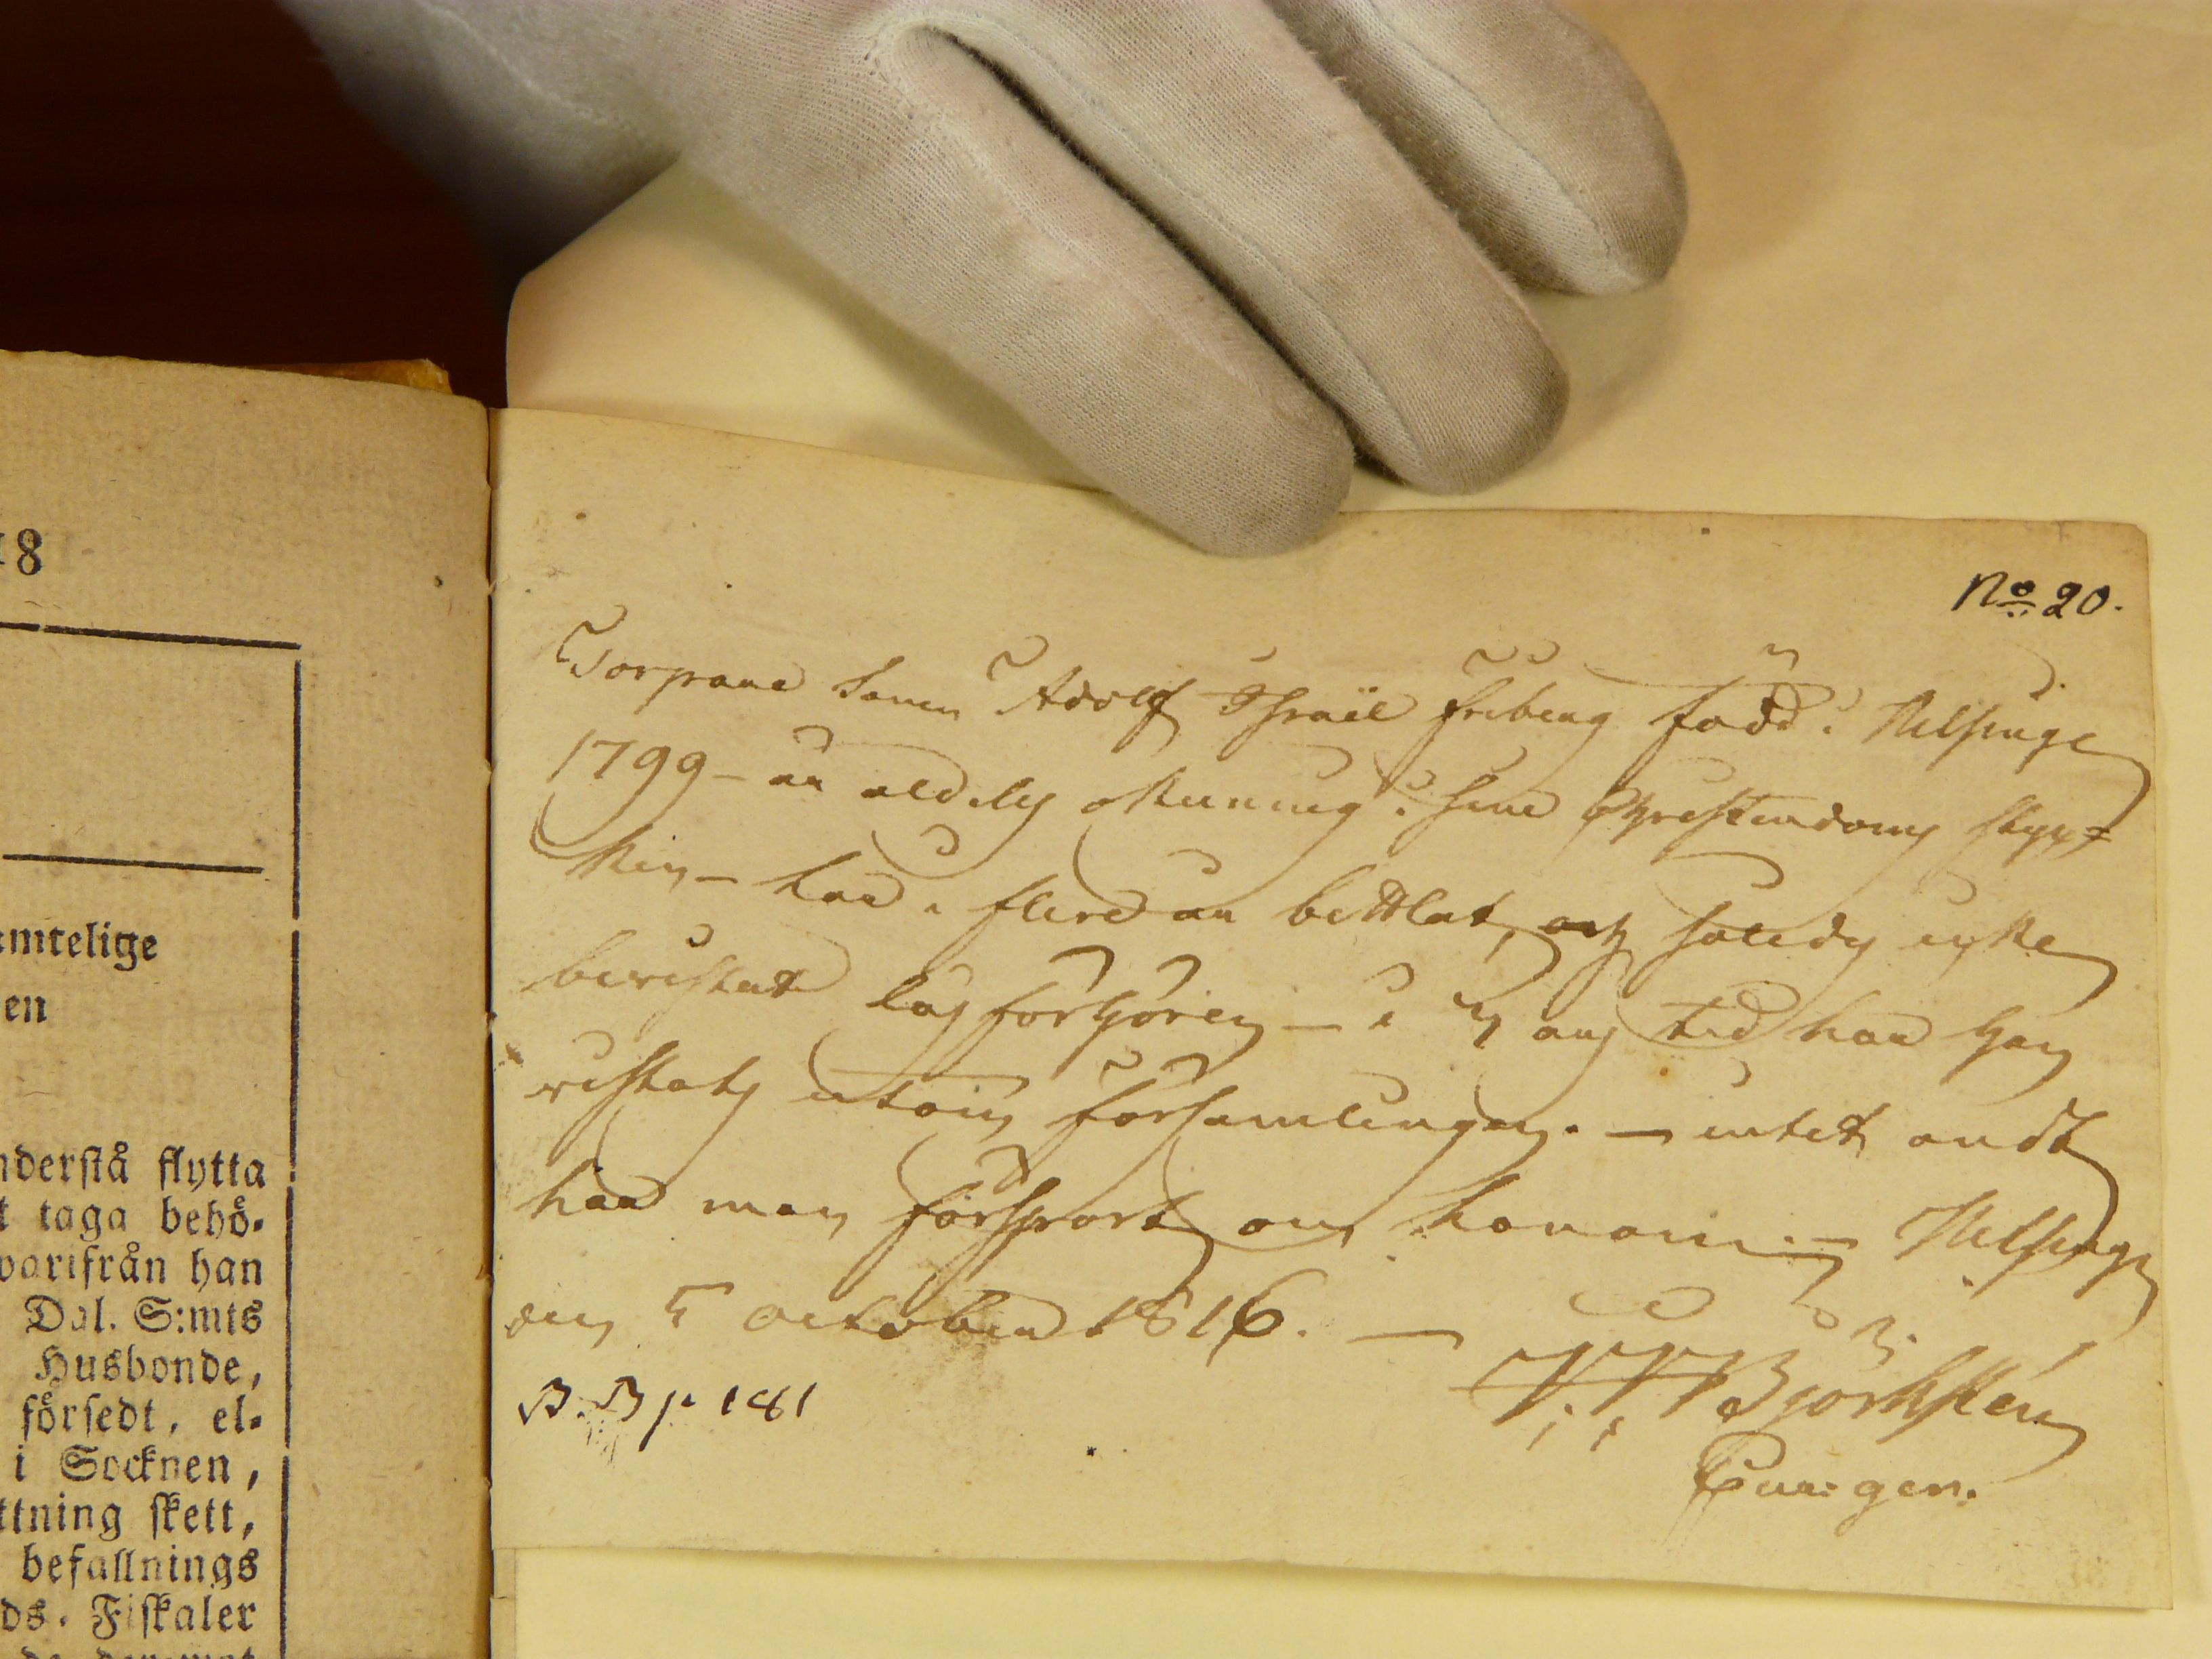 18
mtelige
en
nderstå flytta
t taga behö-
varifrån han
Dal. S:mts
Husbonde,
försedt, el-
i Socknen,
ttning skett,
befallnings
ds. Fiskaler
No 20.
Torpare Sonen Adolf Isräel Friberg född i Helsinge
1799 - är aldeles okunnig i sine Christendoms styc=
ken - har i flere år bettlat, och således icke
bevistat läsförhören - i lång tid har han
vistats utom församlingen. - intet ondt
har man försport om honom. - Helsinge
den 5 October 1816. -
Björkstén
B. B p 181